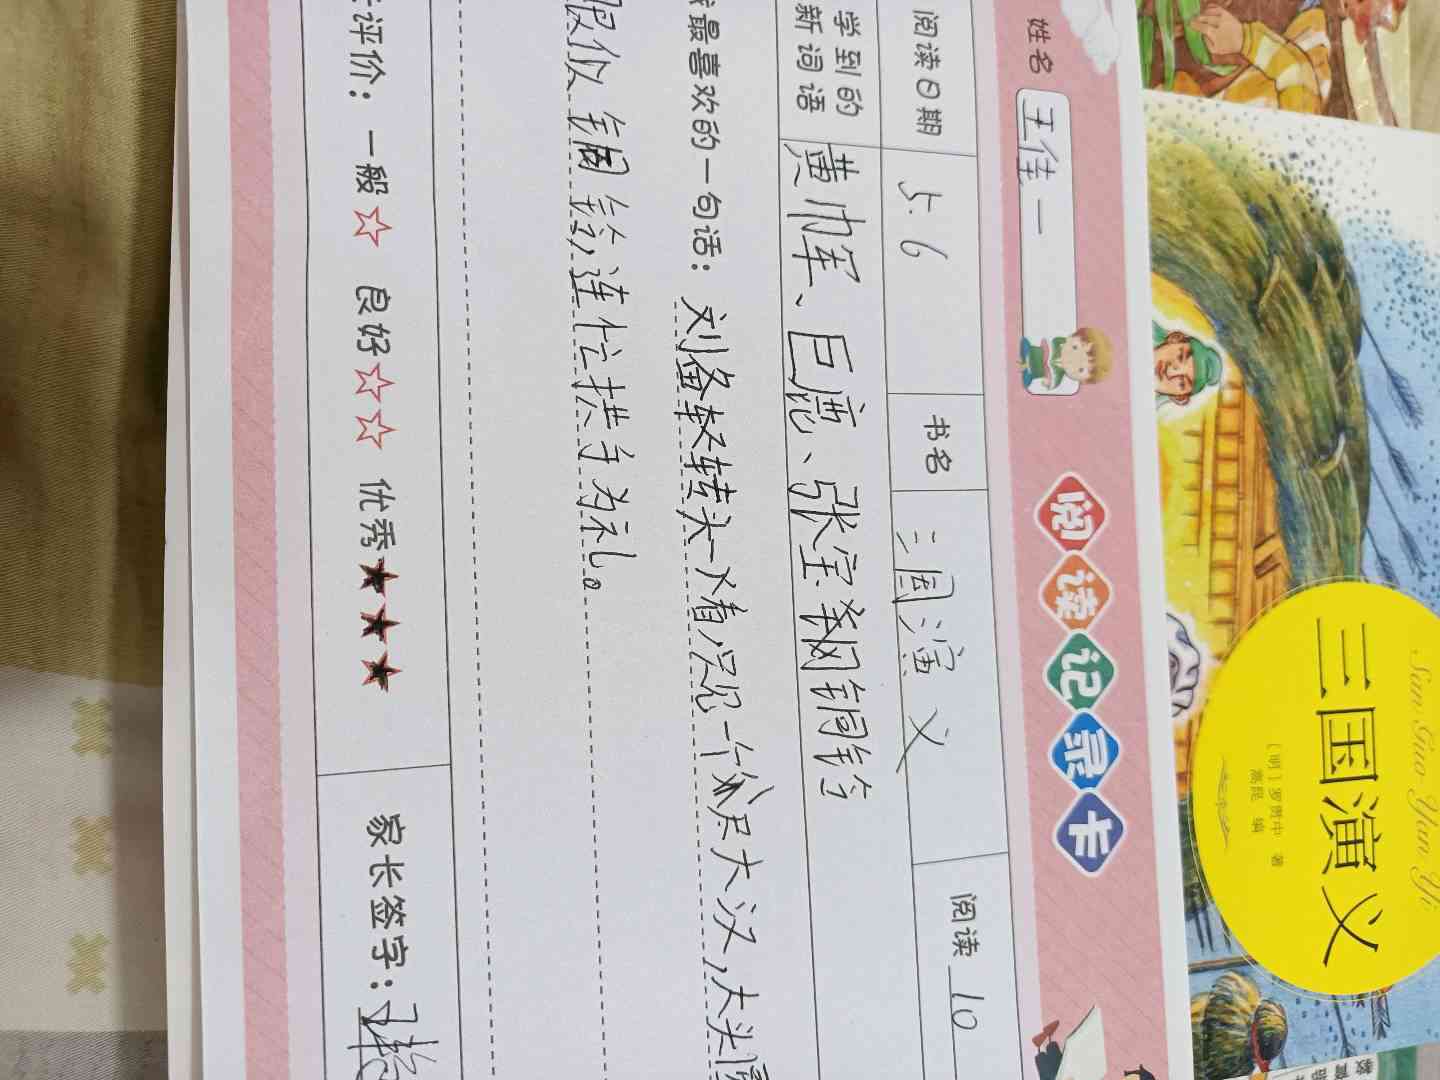 阅读记录卡
姓名 王佳一
阅读日期 5.6 书名 三国演义 阅读 10
学到的新词语 黄巾军、巨鹿、张宝 铜铃
最喜欢的一句话：刘备轻转头一看，只见一个 大汉，大头
眼似铜铃，连忙拱手为礼。
评价：一般☆ 良好☆☆ 优秀★★★ 家长签字：
San Guo Yan Yi
三国演义
［明］罗贯中 著
高昆 编